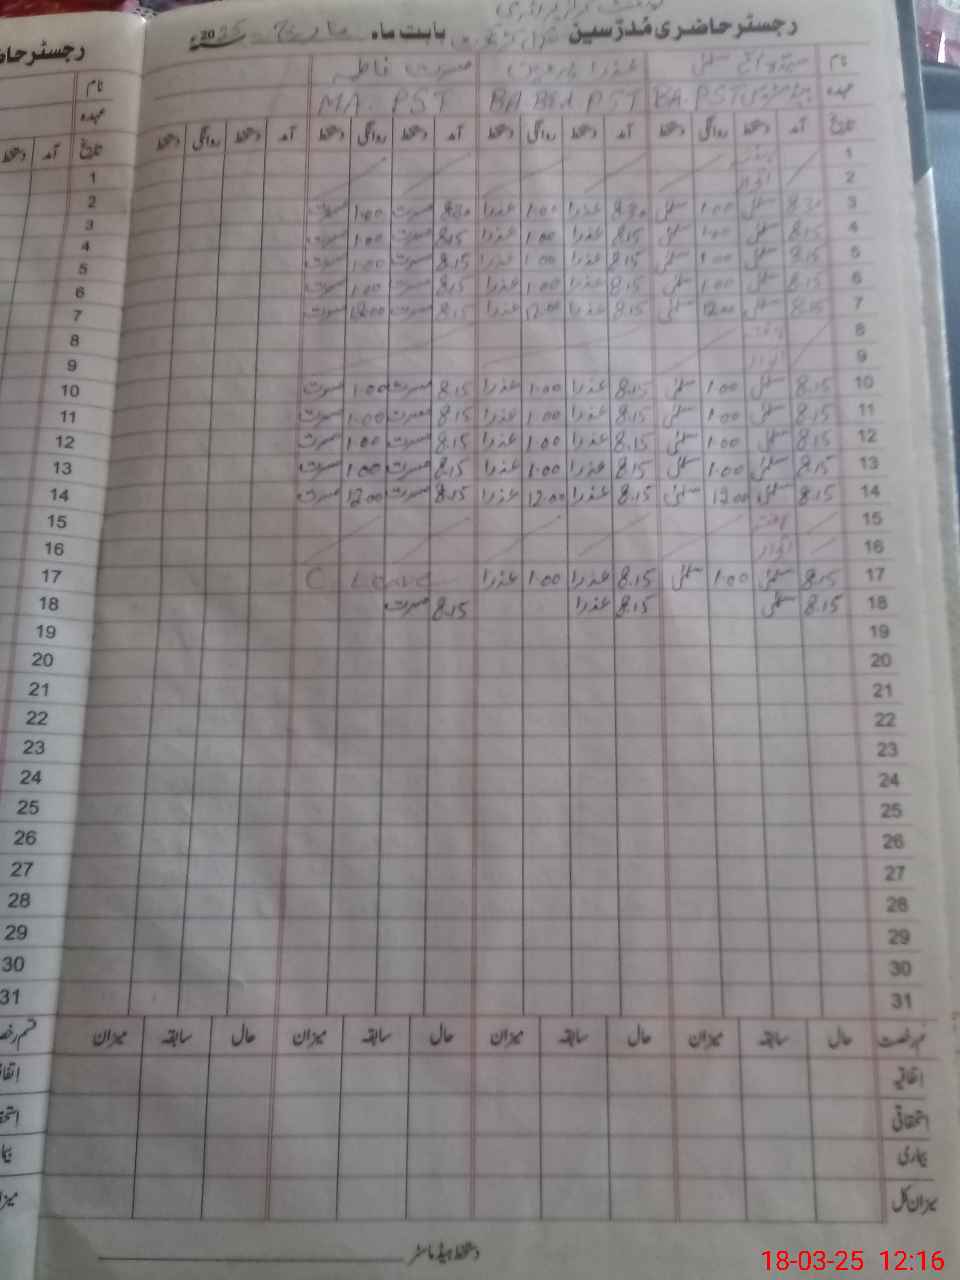 رجسٹر حاضری مُدرّسین بابت ماہ مارچ 2025ء
نام عذرا پروین مسرت فاطمہ
عہدہ BA.PST BA BEd PST MA. PST
تاریخ آمد دستخط روانگی دستخط آمد دستخط روانگی دستخط آمد دستخط روانگی دستخط آمد دستخط روانگی دستخط
1 ہفتہ
2 اتوار
3 8.30 سلمیٰ 1.00 سلمیٰ 8.30 عذرا 1.00 عذرا 8.30 مسرت 1.00 مسرت
4 8.15 سلمیٰ 1.00 سلمیٰ 8.15 عذرا 1.00 عذرا 8.15 مسرت 1.00 مسرت
5 8.15 سلمیٰ 1.00 سلمیٰ 8.15 عذرا 1.00 عذرا 8.15 مسرت 1.00 مسرت
6 8.15 سلمیٰ 1.00 سلمیٰ 8.15 عذرا 1.00 عذرا 8.15 مسرت 1.00 مسرت
7 8.15 سلمیٰ 12.00 سلمیٰ 8.15 عذرا 12.00 عذرا 8.15 مسرت 12.00 مسرت
8 ہفتہ
9 اتوار
10 8.15 سلمیٰ 1.00 سلمیٰ 8.15 عذرا 1.00 عذرا 8.15 مسرت 1.00 مسرت
11 8.15 سلمیٰ 1.00 سلمیٰ 8.15 عذرا 1.00 عذرا 8.15 مسرت 1.00 مسرت
12 8.15 سلمیٰ 1.00 سلمیٰ 8.15 عذرا 1.00 عذرا 8.15 مسرت 1.00 مسرت
13 8.15 سلمیٰ 1.00 سلمیٰ 8.15 عذرا 1.00 عذرا 8.15 مسرت 1.00 مسرت
14 8.15 سلمیٰ 12.00 سلمیٰ 8.15 عذرا 12.00 عذرا 8.15 مسرت 12.00 مسرت
15 ہفتہ
16 اتوار
17 8.15 سلمیٰ 1.00 سلمیٰ 8.15 عذرا 1.00 عذرا C. Leave
18 8.15 سلمیٰ 8.15 عذرا 8.15 مسرت
19
20
21
22
23
24
25
26
27
28
29
30
31
نمبر رخصت حال سابقہ میزان حال سابقہ میزان حال سابقہ میزان حال سابقہ میزان
اتفاقیہ
استحقاقی
بیماری
میزان کل
دستخط ہیڈ ماسٹر
رجسٹر
نام
عہدہ
تاریخ آمد دستخط
1
2
3
4
5
6
7
8
9
10
11
12
13
14
15
16
17
18
19
20
21
22
23
24
25
26
27
28
29
30
31
18-03-25 12:16